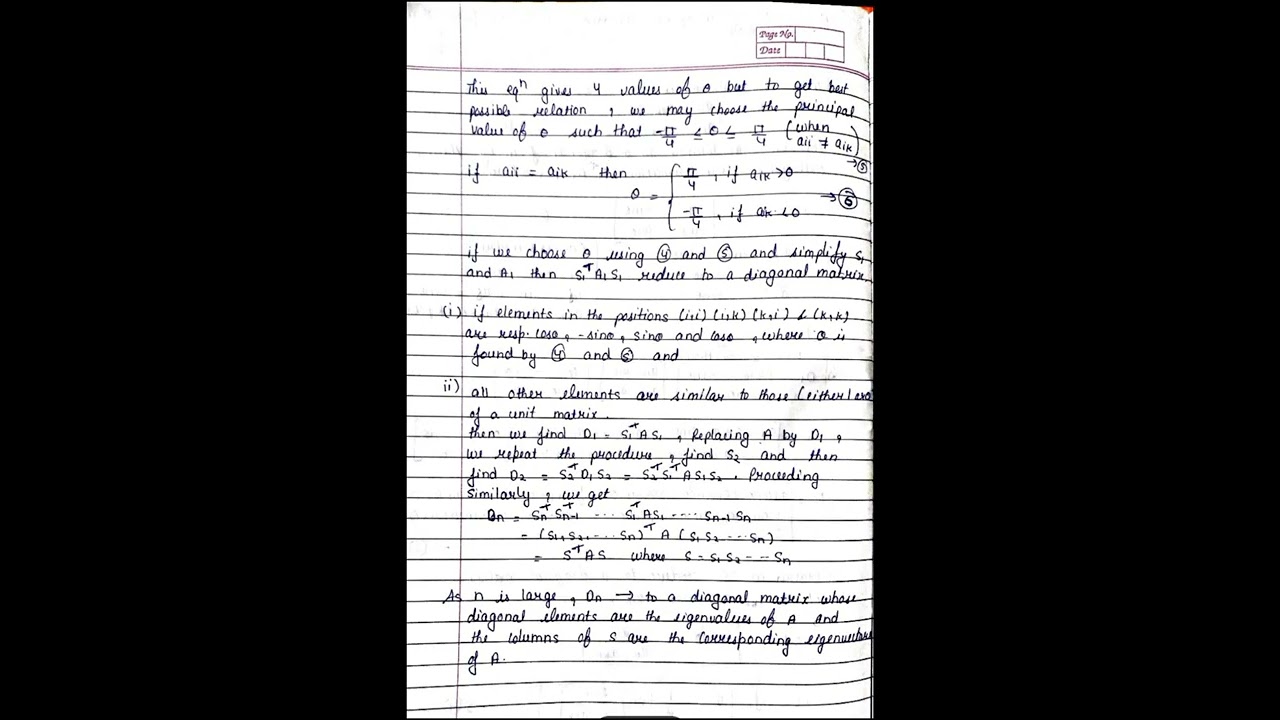 Page No.
Date
This eqⁿ gives 4 values of θ but to get best
possible relation, we may choose the principal
value of θ such that -π/4 ≤ θ ≤ π/4 (when
aii ≠ aik)
→⑤
if aii = aik then
θ = { π/4 , if aik > 0
→⑥
-π/4 , if aik < 0
if we choose θ using ④ and ⑤ and simplify S₁
and A₁ then S₁ᵀA₁S₁ reduce to a diagonal matrix
(i) if elements in the positions (i,i) (i,k) (k,i) & (k,k)
are resp. cosθ, -sinθ, sinθ and cosθ, where θ is
found by ④ and ⑤ and
ii) all other elements are similar to those (either
of a unit matrix.
then we find D₁ = S₁ᵀAS₁, Replacing A by D₁,
we repeat the procedure, find S₂ and then
find D₂ = S₂ᵀD₁S₂ = S₂ᵀS₁ᵀAS₁S₂. Proceeding
similarly, we get
Dn = SnᵀSn-1ᵀ ---- S₁ᵀAS₁ ---- Sn-1 Sn
= (S₁, S₂, --- Sn)ᵀ A (S₁ S₂ --- Sn)
= SᵀAS where S = S₁S₂ --- Sn
As n is large, Dn → to a diagonal matrix whose
diagonal elements are the eigenvalues of A and
the columns of S are the corresponding eigenvectors
of A.